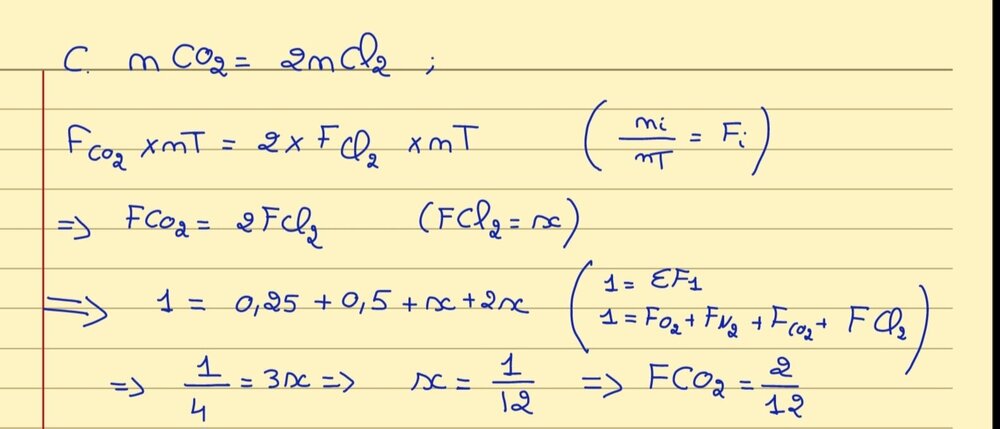 C. nCO₂ = 2nCl₂ ;
F_CO₂ × nT = 2 × F Cl₂ × nT ( ni/nT = Fi )
=> FCO₂ = 2 FCl₂ (FCl₂ = x)
=> 1 = 0,25 + 0,5 + x + 2x ( 1 = ΣF1
1 = FO₂ + FN₂ + FCO₂ + F Cl₂ )
=> 1/4 = 3x => x = 1/12 => FCO₂ = 2/12